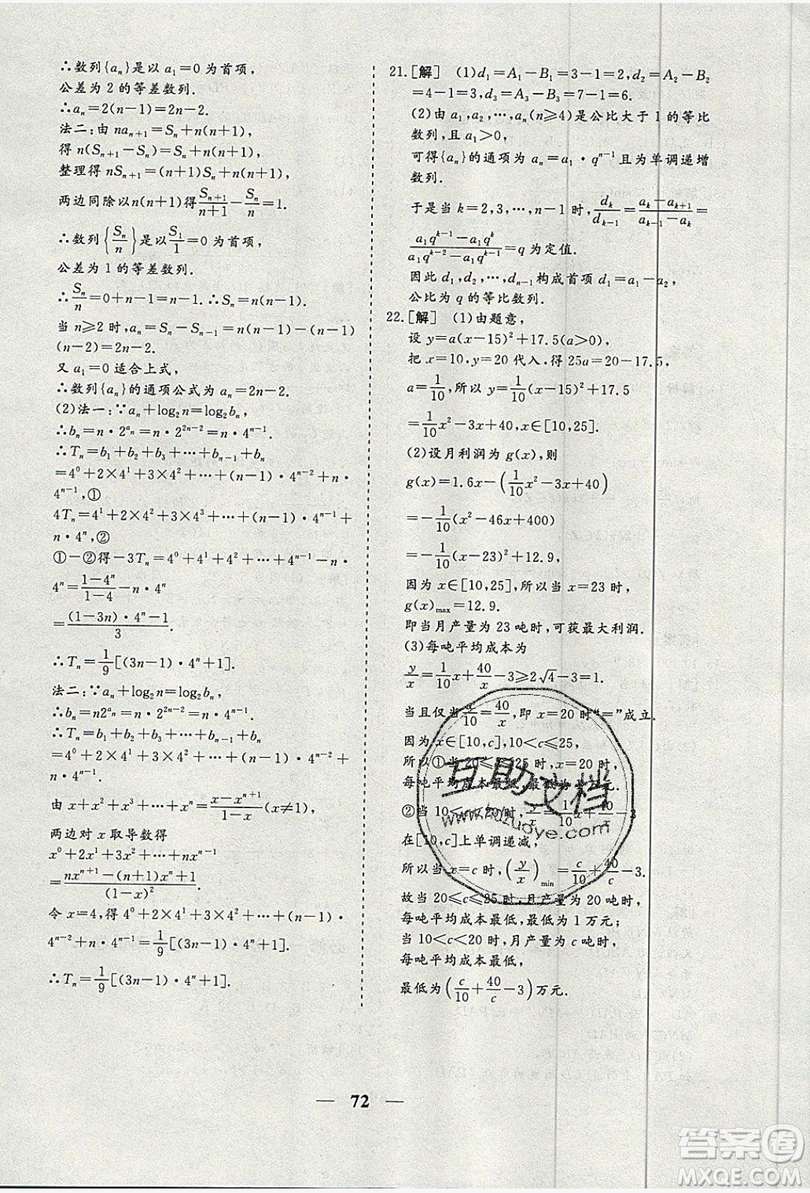 ∴数列{aₙ}是以 a₁=0 为首项，
公差为 2 的等差数列.
∴aₙ=2(n-1)=2n-2.
法二：由 naₙ₊₁=Sₙ+n(n+1)，
得 n(Sₙ₊₁-Sₙ)=Sₙ+n(n+1)，
整理得 nSₙ₊₁=(n+1)Sₙ+n(n+1)，
两边同除以 n(n+1)得 Sₙ₊₁/(n+1)-Sₙ/n=1.
∴数列{Sₙ/n}是以 S₁/1=0 为首项，
公差为 1 的等差数列.
∴Sₙ/n=0+n-1=n-1.∴Sₙ=n(n-1).
当 n≥2 时，aₙ=Sₙ-Sₙ₋₁=n(n-1)-(n-1)·
(n-2)=2n-2.
又 a₁=0 适合上式，
∴数列{aₙ}的通项公式为 aₙ=2n-2.
(2)法一：∵aₙ+log₂n=log₂bₙ，
∴bₙ=n·2^(aₙ)=n·2^(2n-2)=n·4^(n-1).
∴Tₙ=b₁+b₂+b₃+…+bₙ₋₁+bₙ
=4⁰+2×4¹+3×4²+…+(n-1)·4^(n-2)+n·
4^(n-1)，①
4Tₙ=4¹+2×4²+3×4³+…+(n-1)·4^(n-1)+n×4ⁿ，
②
①-②得-3Tₙ=4⁰+4¹+4²+…+4^(n-1)-n·
4ⁿ=(1-4ⁿ)/(1-4)-n·4ⁿ
=((1-3n)·4ⁿ-1)/3.
∴Tₙ=1/9[(3n-1)·4ⁿ+1].
法二：∵aₙ+log₂n=log₂bₙ，
∴bₙ=n2^(aₙ)=n·2^(2n-2)=n·4^(n-1).
∴Tₙ=b₁+b₂+b₃+…+bₙ₋₁+bₙ
=4⁰+2×4¹+3×4²+…+(n-1)·4^(n-2)+n·
4^(n-1).
由 x+x²+x³+…+xⁿ=(x-xⁿ⁺¹)/(1-x)(x≠1)，
两边对 x 取导数得
x⁰+2x¹+3x²+…+nxⁿ⁻¹
=(nxⁿ⁺¹-(n+1)xⁿ+1)/(1-x)².
令 x=4，得 4⁰+2×4¹+3×4²+…+(n-1)·
4^(n-2)+n·4^(n-1)=1/9[(3n-1)·4ⁿ+1].
∴Tₙ=1/9[(3n-1)·4ⁿ+1].
21.[解] (1)d₁=A₁-B₁=3-1=2，d₂=A₂-B₂
=4-1=3，d₃=A₃-B₃=7-1=6.
(2)由 a₁，a₂，…，aₙ(n≥4)是公比大于 1 的等比
数列，且 a₁>0，
可得{aₙ}的通项为 aₙ=a₁·qⁿ⁻¹且为单调递增
数列.
于是当 k=2,3,…,n-1 时，dₖ/dₖ₋₁=(aₖ-aₖ₊₁)/(aₖ₋₁-aₖ)=
(a₁qᵏ⁻¹-a₁qᵏ)/(a₁qᵏ⁻²-a₁qᵏ⁻¹)=q 为定值.
因此 d₁，d₂，…，dₙ₋₁构成首项 d₁=a₁-a₂，
公比为 q 的等比数列.
22.[解] (1)由题意，
设 y=a(x-15)²+17.5(a>0)，
把 x=10，y=20 代入，得 25a=20-17.5，
a=1/10，所以 y=1/10(x-15)²+17.5
=1/10x²-3x+40，x∈[10,25].
(2)设月利润为 g(x)，则
g(x)=1.6x-(1/10x²-3x+40)
=-1/10(x²-46x+400)
=-1/10(x-23)²+12.9，
因为 x∈[10,25]，所以当 x=23 时，
g(x)max=12.9.
即当月产量为 23 吨时，可获最大利润.
(3)每吨平均成本为
y/x=1/10x+40/x-3≥2√4-3=1.
当且仅当x/10=40/x，即 x=20 时“=”成立.
因为 x∈[10,c]，10<c≤25，
所以①当 20≤c≤25 时，x=20 时，
每吨平均成本最低，
②当 10<c<20 时，y/x=x/10+40/x-3
在[10,c]上单调递减，
所以当 x=c 时，(y/x)min=c/10+40/c-3.
故当 20≤c≤25 时，月产量为 20 吨时，
每吨平均成本最低，最低为 1 万元；
当 10<c<20 时，月产量为 c 吨时，
每吨平均成本最低，
最低为(c/10+40/c-3)万元.
互助文档
— 72 —
答案圈
MXQE.COM